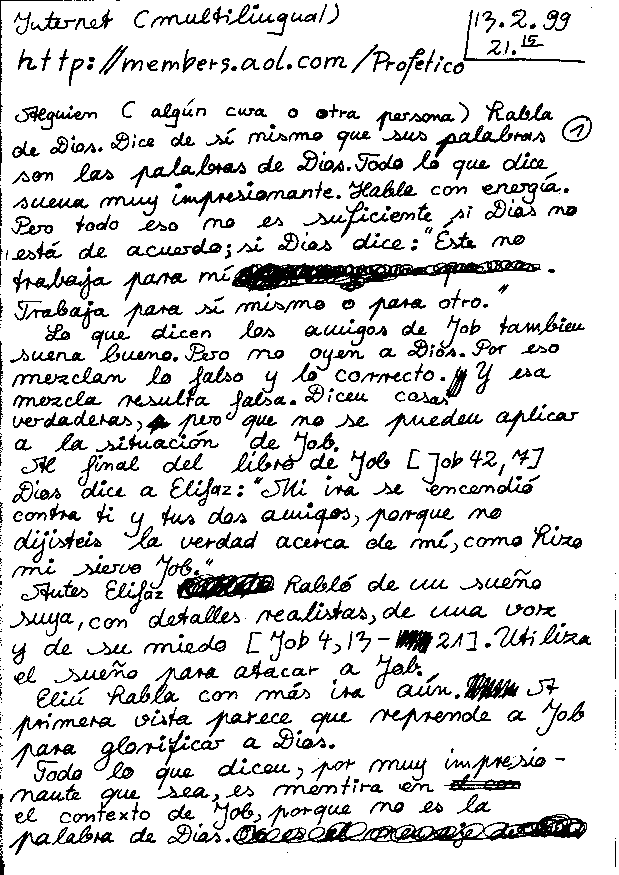 Internet (multilingual)
13.2.99
21.15
http://members.aol.com/Profetico
Alguien (algún cura o otra persona) habla
de Dios. Dice de sí mismo que sus palabras
1
son las palabras de Dios. Todo lo que dice
suena muy impresionante. Hable con energía.
Pero todo eso no es suficiente si Dios no
está de acuerdo; si Dios dice: "Éste no
trabaja para mí .
Trabaja para sí mismo o para otro."
Lo que dicen los amigos de Job tambien
suena bueno. Pero no oyen a Dios. Por eso
mezclan lo falso y lo correcto. Y esa
mezcla resulta falsa. Dicen cosas
verdaderas, pero que no se pueden aplicar
a la situación de Job.
Al final del libro de Job [Job 42,7]
Dios dice a Elifaz: "Mi ira se encendió
contra ti y tus dos amigos, porque no
dijisteis la verdad acerca de mí, como hizo
mi siervo Job."
Antes Elifaz habló de un sueño
suyo, con detalles realistas, de una voz
y de su miedo [Job 4,13-21]. Utiliza
el sueño para atacar a Job.
Eliú habla con más ira aún. A
primera vista parece que reprende a Job
para glorificar a Dios.
Todo lo que dicen, por muy impresio-
nante que sea, es mentira en
el contexto de Job, porque no es la
palabra de Dios.